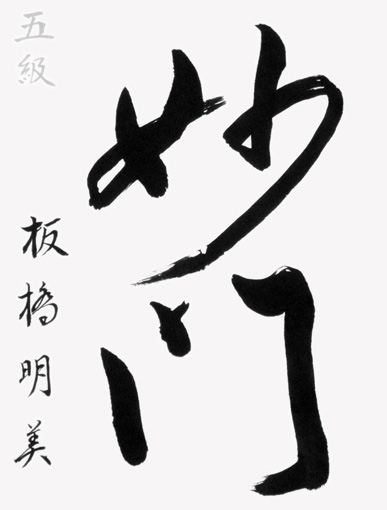 妙門
五級
板橋明美